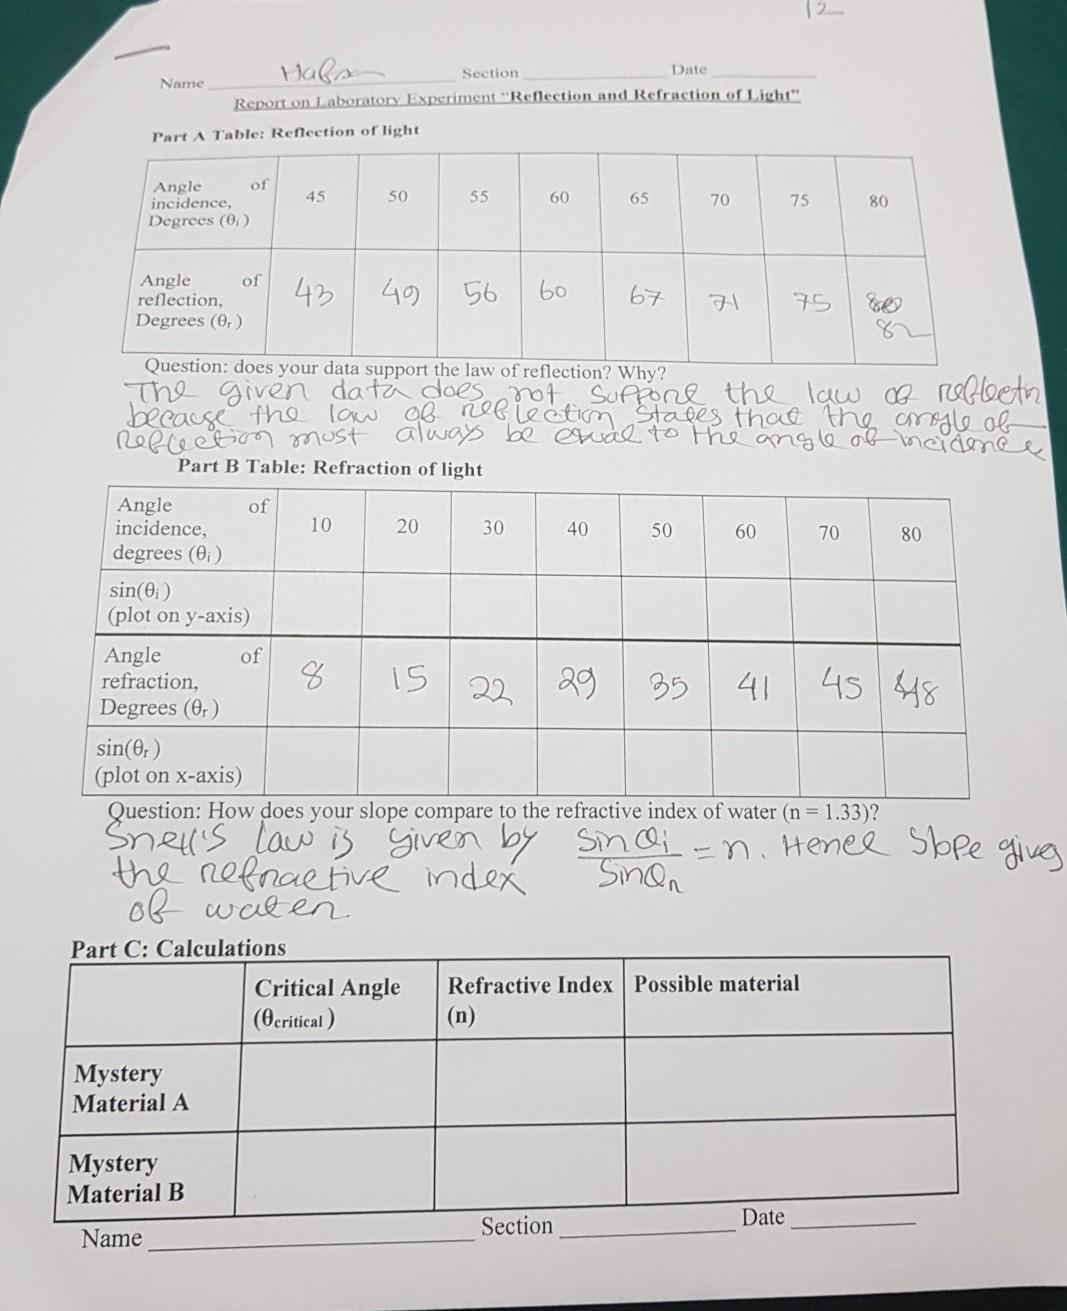 12
Name Hafsa Section Date
Report on Laboratory Experiment "Reflection and Refraction of Light"
Part A Table: Reflection of light
Angle of incidence, Degrees (θi) 45 50 55 60 65 70 75 80
Angle of reflection, Degrees (θr) 43 49 56 60 67 71 75 82
Question: does your data support the law of reflection? Why?
The given data does not suppore the law of reflectn
because the law of reflection states that the angle of
Reflection must always be equal to the angle of incidence
Part B Table: Refraction of light
Angle of incidence, degrees (θi) 10 20 30 40 50 60 70 80
sin(θi) (plot on y-axis)
Angle of refraction, Degrees (θr) 8 15 22 29 35 41 45 48
sin(θr) (plot on x-axis)
Question: How does your slope compare to the refractive index of water (n = 1.33)?
Snell's law is given by sinθi / sinθr = n. Hence slope gives
the refractive index
of water
Part C: Calculations
Critical Angle (θcritical) Refractive Index (n) Possible material
Mystery Material A
Mystery Material B
Name Section Date